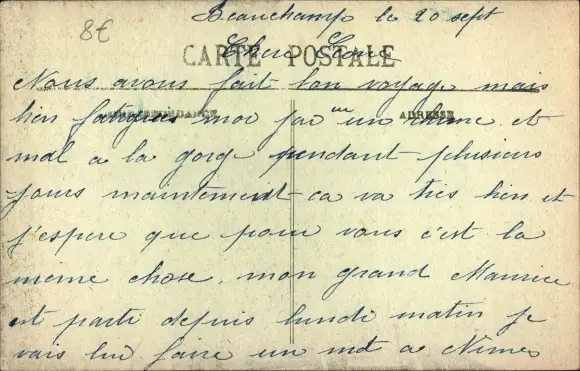 8€
Beauchamp le 20 sept
Chere
CARTE POSTALE
Nous avons fait bon voyage mais
CORRESPONDANCE
ADRESSE
bien fatigues moi j'ai eu un rhume et
mal a la gorge pendant plusieurs
jours maintenent ca va tres bien et
j'espere que pour vous c'est la
meme chose. mon grand Maurice
est parti depuis lundi matin je
vais lui faire un mot a Nimes